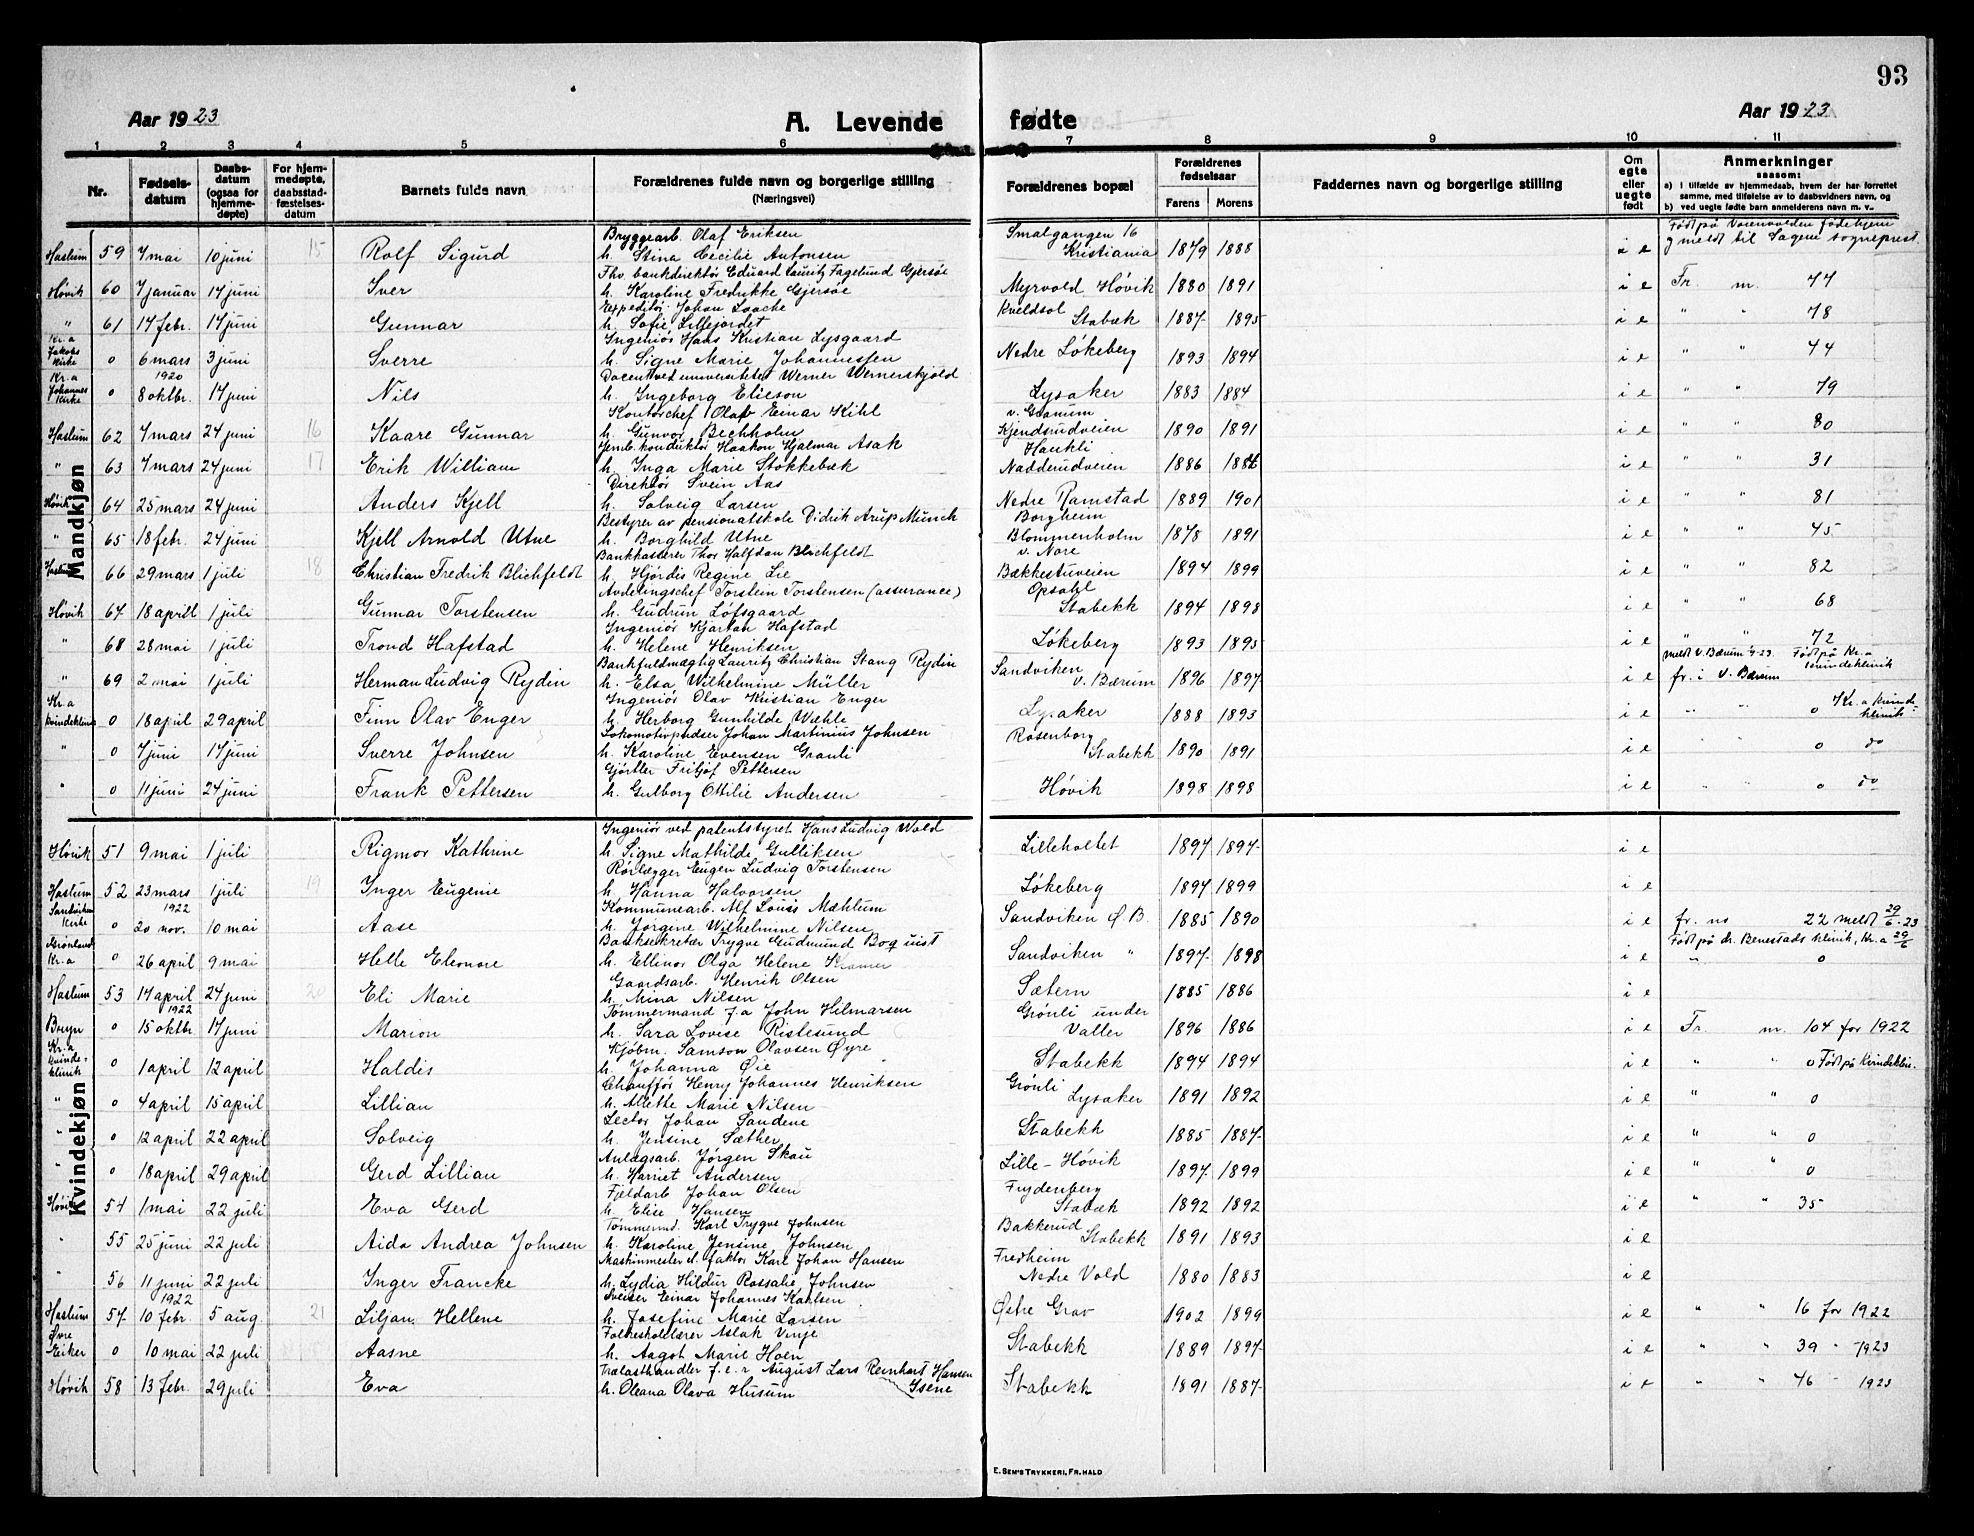 93
Aar 1923
A. Levende
fødte
Aar 1923
1 2 3 4 5 6 7 8 9 10 11
Nr.
Fødsels-
datum
Daabs-
datum
(ogsaa for
hjemme-
døpte)
For hjem-
medøpte,
daabsstad-
fæstelses-
datum
Barnets fulde navn
Forældrenes fulde navn og borgerlige stilling
(Næringsvei)
Forældrenes bopæl
Forældrenes
fødselsaar
Farens Morens
Faddernes navn og borgerlige stilling
Om
egte
eller
uegte
født
Anmerkninger
saasom:
a) i tilfælde av hjemmedaab, hvem der har forrettet
samme, med tilføielse av to daabsvidners navn, og
b) ved uegte født barn anmelderens navn m. v.
Mandkjøn
Bryggearb. Olaf Eriksen Smalgangen 16 Født på fødehjem
Haslum 59 7 mai 10 juni 15 Rolf Sigurd h. Stina Cecilie Antonsen Kristiania 1879 1888 i e meldt til Sagene sogneprest
Fhv. bankdirektør Eduard Lauritz Fagelund Gjersøe
Høvik 60 7 januar 14 juni Iver h. Karoline Fredrikke Gjersøe Myrvold Høvik 1880 1891 i e Fr. m. 44
Expeditør Johan Laache Kveldsol
" 61 14 febr. 14 juni Gunnar h. Sofie Lillejordet Stabæk 1887 1895 i e " " 78
Kr.a Jakobs Kirke Ingeniør Hans Kristian Lysgaard
0 6 mars 3 juni Sverre h. Signe Marie Johannessen Nedre Løkeberg 1893 1894 i e " " 44
Kr.a Johannes Kirke 1920 Docent ved universitetet Werner Wernerskjold
0 8 oktbr. 14 juni Nils h. Ingeborg Elieson Lysaker 1883 1884 i e " " 79
Kontorchef Olav Einar Kihl v. Granum
Haslum 62 7 mars 24 juni 16 Kaare Gunnar h. Gunvor Bechholm Kjendsrudveien 1890 1891 i e " " 80
Jernb. konduktør Haakon Hjalmar Asak Haukli
" 63 7 mars 24 juni 17 Erik William h. Inga Marie Stokkebæk Nadderudveien 1886 i e " " 31
Direktør Svein Aas
Høvik 64 25 mars 24 juni Anders Kjell h. Solveig Larsen Nedre Ramstad 1889 1901 i e " " 81
Bestyrer av pensionatskole Didrik Arup Munch Borgheim
" 65 18 febr. 24 juni Kjell Arnold Utne h. Borghild Utne Blommenholm 1878 1891 i e " " 45
Bankkasserer Thor Halfdan Blichfeldt v. Nore
Haslum 66 29 mars 1 juli 18 Christian Fredrik Blichfeldt h. Hjørdis Regine Lie Bækkestuveien 1894 1899 i e " " 82
Avdelingschef Torstein Torstensen (assurance) Opsahl
Høvik 67 18 april 1 juli Gunnar Torstensen h. Gudrun Løfsgaard Stabekk 1894 1898 i e " " 68
Ingeniør Kjartan Hafstad
" 68 28 mai 1 juli Trond Hafstad h. Helene Henriksen Løkeberg 1893 1895 i e " " 72
Bankfuldmægtig Lauritz Christian Stang Rydin Sandviken meldt V. Bærum Født på Kr.a kvindeklinik
" 69 2 mai 1 juli Herman Ludvig Rydin h. Elsa Wilhelmine Müller v. Bærum 1896 1897 i e fr. i V. Bærum
Kr.a Ingeniør Olav Kristian Enger
kvindeklinik 0 18 april 29 april Finn Olav Enger h. Herborg Gunhilde Wæhle Lysaker 1888 1893 i e " " 0 Kr.a kvindeklinik
Lokomotivpudser Johan Martinius Johnsen Rosenborg
" 0 7 juni 17 juni Sverre Johnsen h. Karoline Evensen Granli Stabekk 1890 1891 i e " " 0 do
Gjørtler Fritjof Pettersen
" 0 11 juni 24 juni Frank Pettersen h. Gulborg Ottilie Andersen Høvik 1898 1898 i e " " 0 do
Kvindekjøn
Ingeniør ved patentstyret Hans Ludvig Wold
Høvik 51 9 mai 1 juli Rigmor Kathrine h. Signe Mathilde Gulliksen Lilleholtet 1897 1897 i e
Rørlægger Eugen Ludvig Torstensen
Haslum 52 23 mars 1 juli 19 Inger Eugenie h. Hanna Halvorsen Løkeberg 1897 1899 i e
Sandviken Kirke 1922 Kommunearb. Alf Louis Mæhlum
0 20 nov. 10 mai Aase h. Jørgine Wilhelmine Nilsen Sandviken Ø.B. 1885 1890 i e fr. no 22 meldt 29/6-23
Grønland Kr.a Banksekretær Trygve Gudmund Født på dr. Benestads klinik, Kr.a 29/6
0 26 april 9 mai Helle Eleonore h. Ellinor Olga Helene Kramer Sandviken " 1897 1898 i e " 0
Gaardsarb. Henrik Olsen
Haslum 53 14 april 24 juni 20 Eli Marie h. Mina Nilsen Sætern 1885 1886 i e
1922 Tømmermand f.a John Hilmarsen Grønli under
Bryn 0 15 oktbr 17 juni Marion h. Sara Lovise Ristesund Valler 1896 1886 i e Fr. m. 104 for 1922
Kr.a kvindeklinik Kjøbm. Samson Olavsen Øyre
0 1 april 12 april Haldis h. Johanna Øie Stabekk 1894 1894 i e " " 0 Født på kvindeklin.
Chauffør Henry Johannes Henriksen Grønli
" 0 4 april 15 april Lillian h. Alette Marie Nilsen Lysaker 1891 1892 i e " " 0
Lector Johan Sandene
" 0 12 april 22 april Solveig h. Jensine Sæther Stabekk 1885 1887 i e " " 0
Anlægsarb. Jørgen Skau
" 0 18 april 29 april Gerd Lillian h. Harriet Andersen Lille-Høvik 1897 1899 i e " " 0
Fjeldarb Johan Olsen Frydenberg
Høvik 54 1 mai 22 juli Eva Gerd h. Elise Hansen Stabæk 1892 1892 i e " " 35
Tømmermd. Karl Trygve Johnsen Bakkerud
" 55 25 juni 22 juli Aida Andrea Johnsen h. Karoline Jensine Johnsen Stabekk 1891 1893 i e
Maskinmester Karl Johan Hansen Fredheim
" 56 11 juni 22 juli Inger Francke h. Lydia Hildur Rossalie Johnsen Nedre Vold 1880 1883 i e
1922 Sveiser Einar Johannes Karlsen
Haslum 57 10 febr. 5 aug. 21 Liljan Hellene h. Josefine Marie Larsen Østre Grav 1902 1899 i e " " 16 for 1922
Øvre Folkeskolelærer Aslak Vinje
Eiker 0 10 mai 22 juli Aasne h. Aagot Marie Hoen Stabekk 1889 1897 i e " " 39 " 1923
Trælasthandler f.e.r August Lars Reinhart Hansen
Høvik 58 13 febr. 29 juli Eva h. Oleana Olava Husum Isene Stabekk 1891 1887 i e " " 46 - 1923
E. SEM'S TRYKKERI, FR.HALD